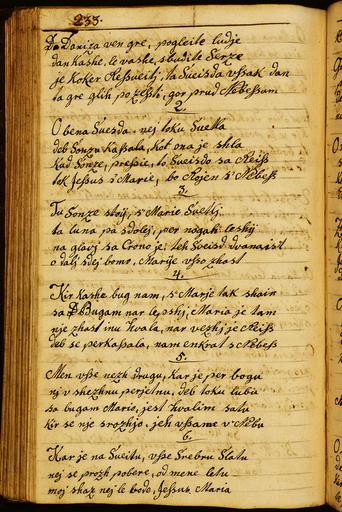 233.
Da Daniza ven gre, pogleite ludje
dan kashe, le vashe, sbudite Serze
je Koker Ressueitlj, ta Sueisda vssak dan
ta gre glih po zesti, gor prud Nebessam
2.
O bena Suesda. nej toku Suetla
deb Sonzu Kassala, Kot ona je shla
Kad Sonze, pressie, to Sueisdo sa Reiss
tok Jessus s' Marie, bo Rojen s' Nebess
3.
Tu Sonze stoij, s' Marie Suetlj
ta luna pa sdolej, per nogah leshij
na glavj sa Crono je: leh Sveisd dvanaist
o dalj sdej bomo, Marije vso zhast
4.
Kir kashe bug nam, s' Marje tak shain
sa Bugam nar lepshj, Maria je tam
nje zhast inu hvala, nar vezhj je Reiss
deb se perkassala, nam enkrat s Nebess
5.
Men vsse nezh drugu, Kar je per bogu
nj v shezhnu perjetnu, deb toku lubu
sa bugam Mario, jest hvalim satu
kir se nje srozhijo, jeh vssame v Nebu
6.
Kar je na Sueitu, vsse Srebru Slatu
nej se prozh pobere, od mene letu
moj shaz nej le bode, Jessus Maria